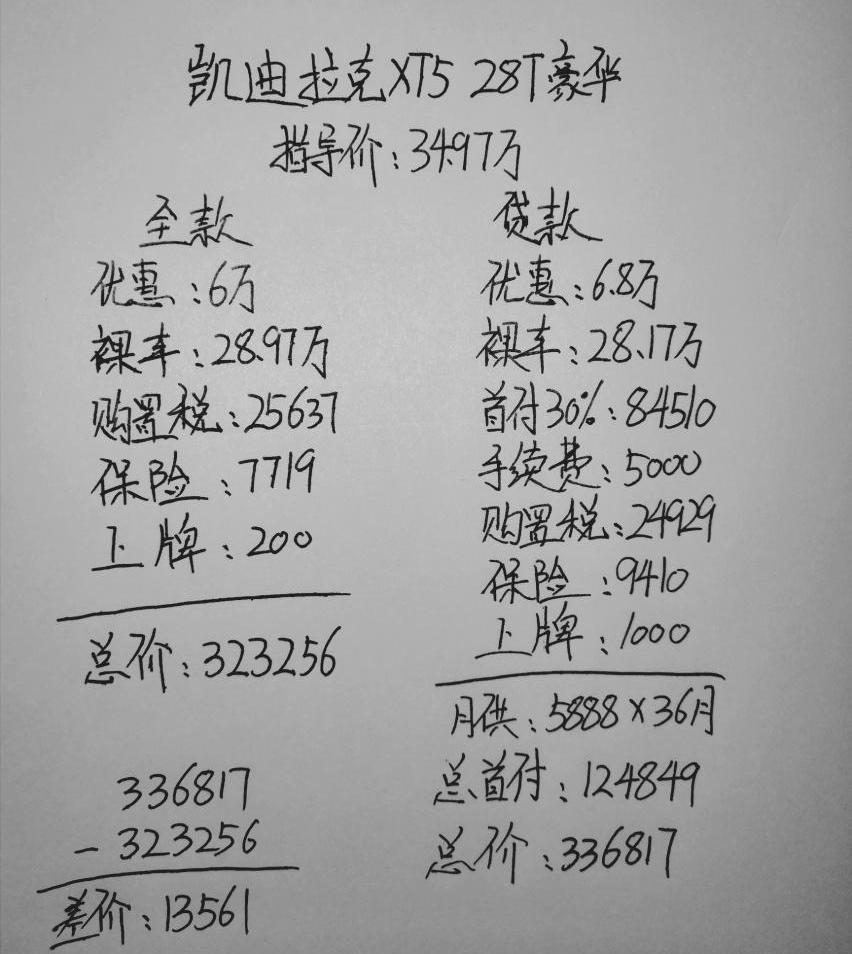 凯迪拉克XT5 28T豪华
指导价:34.97万
全款
优惠:6万
裸车:28.97万
购置税:25637
保险:7719
上牌:200
总价:323256
336817
-323256
差价:13561
贷款
优惠:6.8万
裸车:28.17万
首付30%:84510
手续费:5000
购置税:24929
保险:9410
上牌:1000
月供:5888×36月
总首付:124849
总价:336817